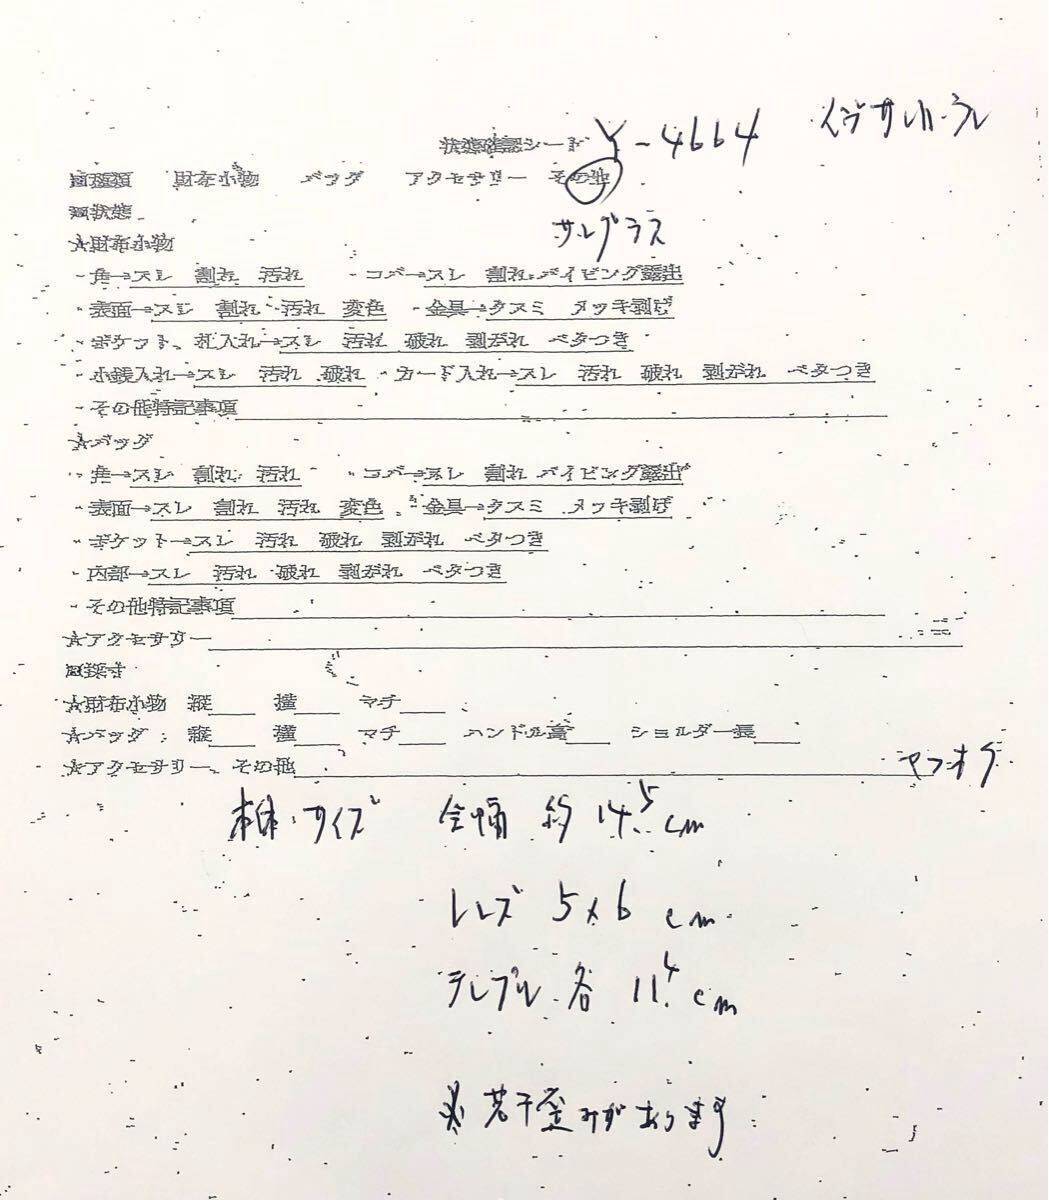 状態確認シート Y-4664 イヴサンローラン
■種類 財布小物 バッグ アクセサリー その他
サングラス
■状態
★財布小物
・角→スレ 割れ 汚れ ・コバ→スレ 割れ パイピング露出
・表面→スレ 割れ 汚れ 変色 ・金具→クスミ メッキ剥げ
・ポケット、札入れ→スレ 汚れ 破れ 剥がれ ベタつき
・小銭入れ→スレ 汚れ 破れ ・カード入れ→スレ 汚れ 破れ 剥がれ ベタつき
・その他特記事項
★バッグ
・角→スレ 割れ 汚れ ・コバ→スレ 割れ パイピング露出
・表面→スレ 割れ 汚れ 変色 ・金具→クスミ メッキ剥げ
・ポケット→スレ 汚れ 破れ 剥がれ ベタつき
・内部→スレ 汚れ 破れ 剥がれ ベタつき
・その他特記事項
★アクセサリー
■採寸
★財布小物 縦 横 マチ
★バッグ 縦 横 マチ ハンドル高 ショルダー長
★アクセサリー、その他 ヤフオク
本体サイズ 全幅 約 14.5 cm
レンズ 5×6 cm
テンプル 各 11.4 cm
※若干歪みがあります